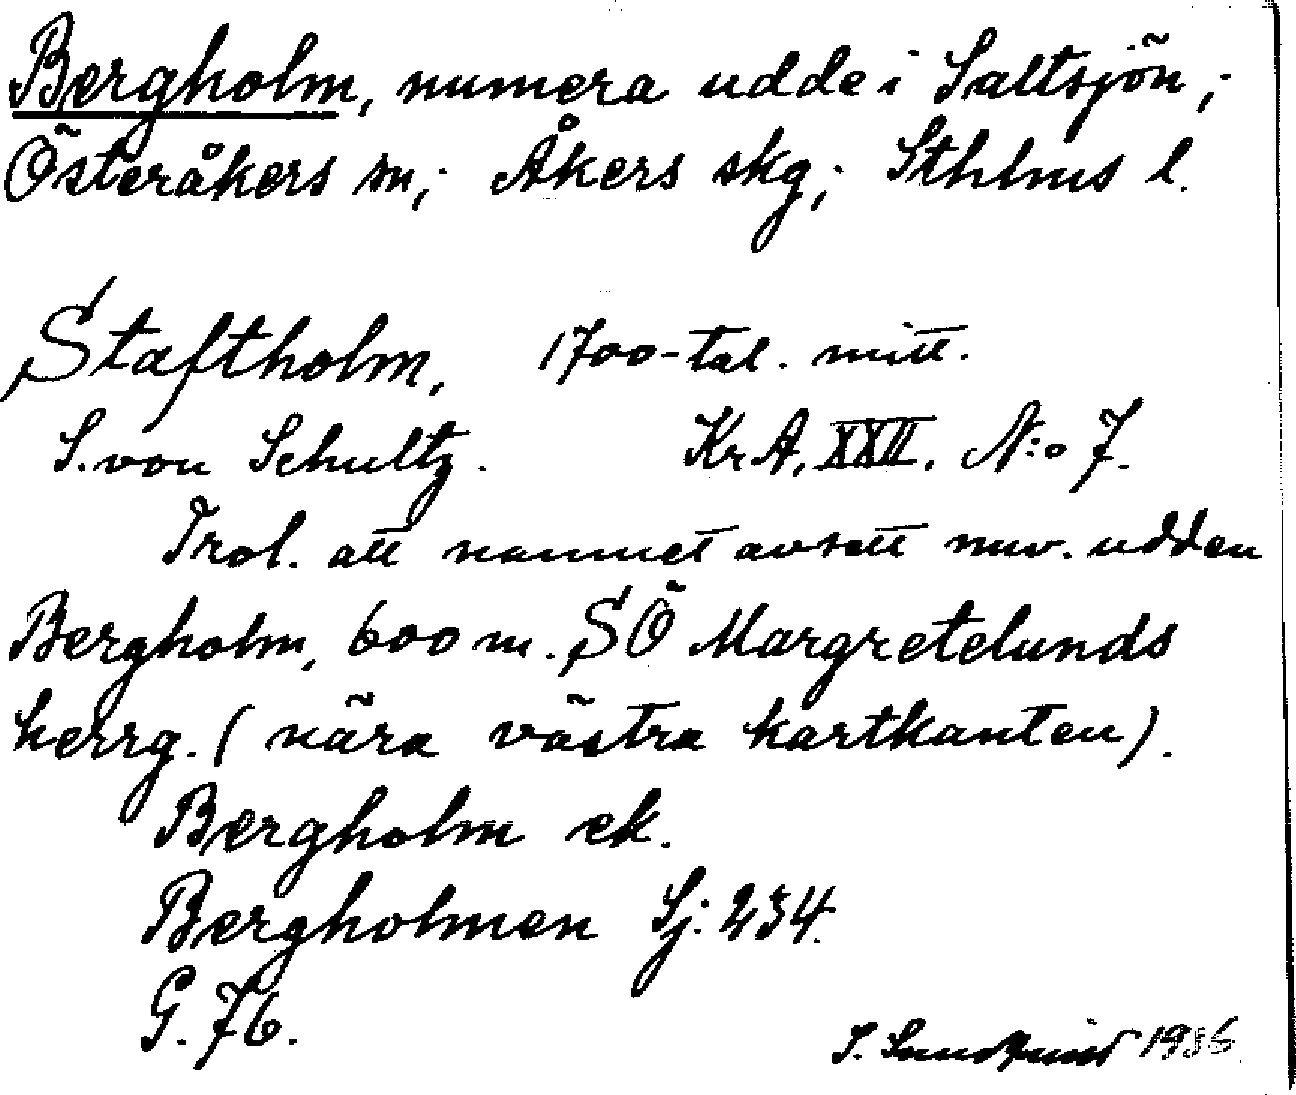 Bergholm, numera udde i Saltsjön;
Österåkers sn; Åkers skg; Sthlms l.
Staftholm, 1700-tal. mitt.
S. von Schultz. KrA, XXII. N:o 7.
Trol. att namnet avsett nuv. udden
Bergholm, 600 m. SÖ Margretelunds
herrg. (nära västra kartkanten).
Bergholm ek.
Bergholmen Sj: 234.
G. 76.
S. Sundqvist 1936